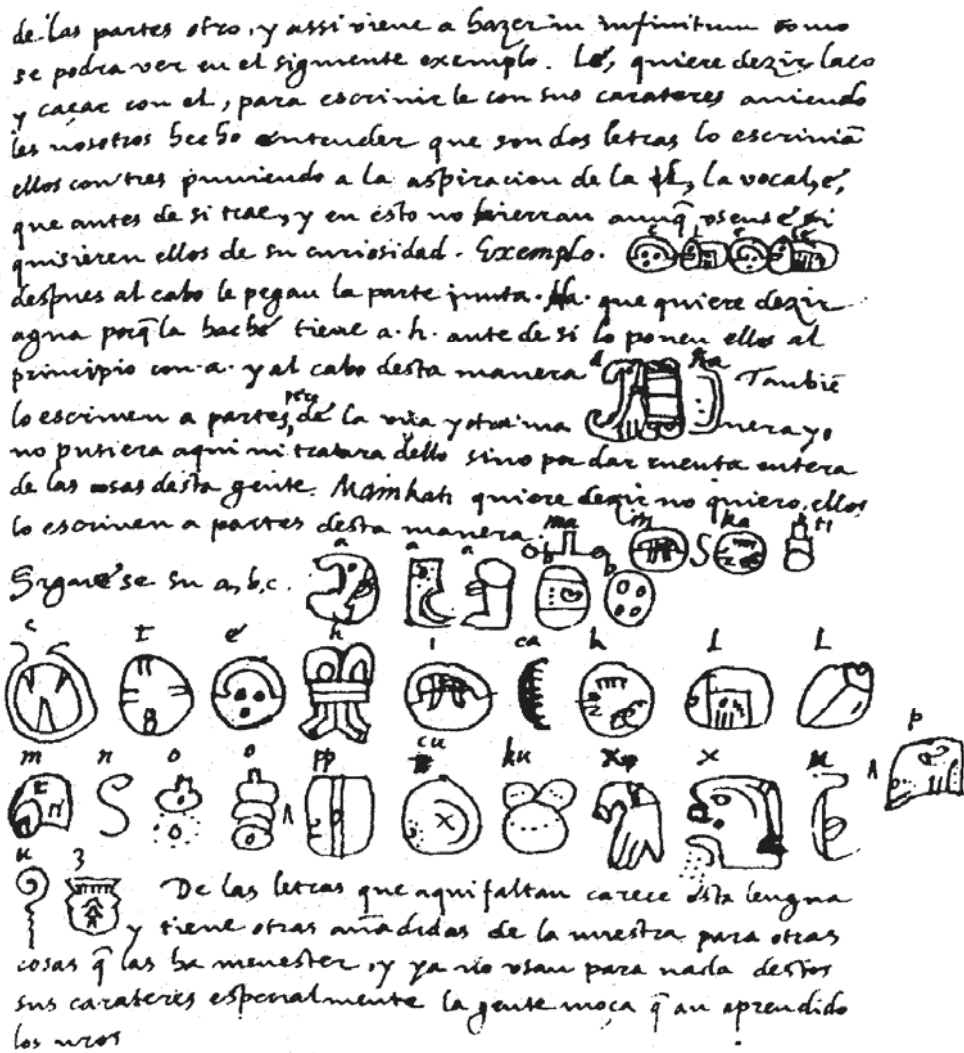 de las partes otro, y assi viene a hazer in infinitum como
se podra ver en el siguiente exemplo. Le, quiere dezir laço
y caçar con el, para escriuirle con sus carateres auiendo
les nosotros hecho entender que son dos letras lo escriuiã
ellos con tres puniendo a la aspiracion de la l, la vocal, e,
que antes de si trae, y en esto no hierran aunq̃ vsense, si
quisieren ellos de su curiosidad. Exemplo. e l e le
despues al cabo le pegan la parte junta. Ha. que quiere dezir
agua porq̃ la hache tiene a. h. ante de si lo ponen ellos al
principio con .a. y al cabo desta manera a ha Tambiẽ
lo escriuen a partes, pero de la vna y otra ma nera yo
no pusiera aqui ni tratara dello sino por dar cuenta entera
de las cosas desta gente. Mainkati quiere dezir no quiero, ellos
lo escriuen a partes desta manera. ma in ka ti
Siguese su a, b, c. a a a b b
c t e h i ca k l l
m n o o pp cu ku x x u p
u z De las letras que aqui faltan carece esta lengua
y tiene otras añadidas de la nuestra para otras
cosas q̃ las ha menester, y ya no vsan para nada destos
sus carateres especialmente la gente moça q̃ an aprendido
los nros